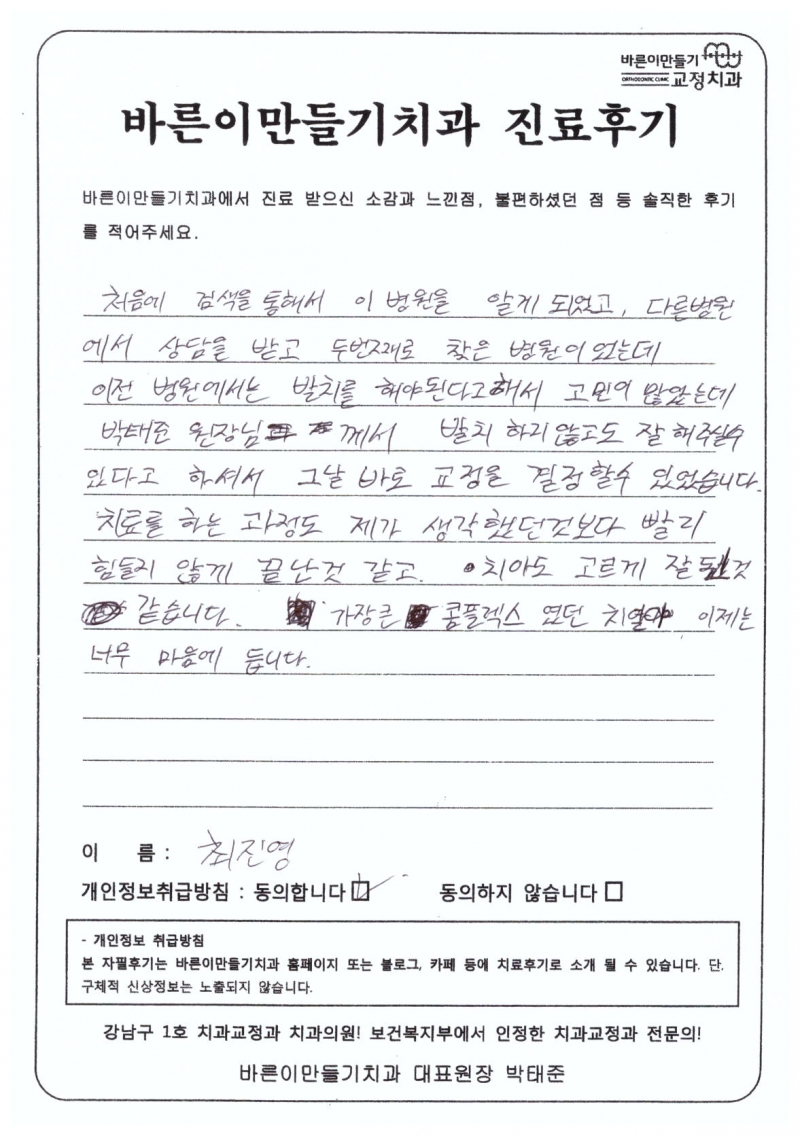 바른이만들기
ORTHODONTIC CLINIC 교정치과
바른이만들기치과 진료후기
바른이만들기치과에서 진료 받으신 소감과 느낀점, 불편하셨던 점 등 솔직한 후기
를 적어주세요.
처음에 검색을 통해서 이 병원을 알게 되었고, 다른병원
에서 상담을 받고 두번째로 찾은 병원이 었는데
이전 병원에서는 발치를 해야된다고해서 고민이 많았는데
박태준 원장님 께서 발치 하지않고도 잘 해주실수
있다고 하셔서 그날 바로 교정을 결정할수 있었습니다.
치료를 하는 과정도 제가 생각했던것보다 빨리
힘들지 않게 끝난것 같고. 치아도 고르게 잘 된것
같습니다. 가장큰 콤플렉스 였던 치열이 이제는
너무 마음에 듭니다.
이 름 : 최진영
개인정보취급방침 : 동의합니다 동의하지 않습니다
- 개인정보 취급방침
본 자필후기는 바른이만들기치과 홈페이지 또는 블로그, 카페 등에 치료후기로 소개 될 수 있습니다. 단,
구체적 신상정보는 노출되지 않습니다.
강남구 1호 치과교정과 치과의원! 보건복지부에서 인정한 치과교정과 전문의!
바른이만들기치과 대표원장 박태준